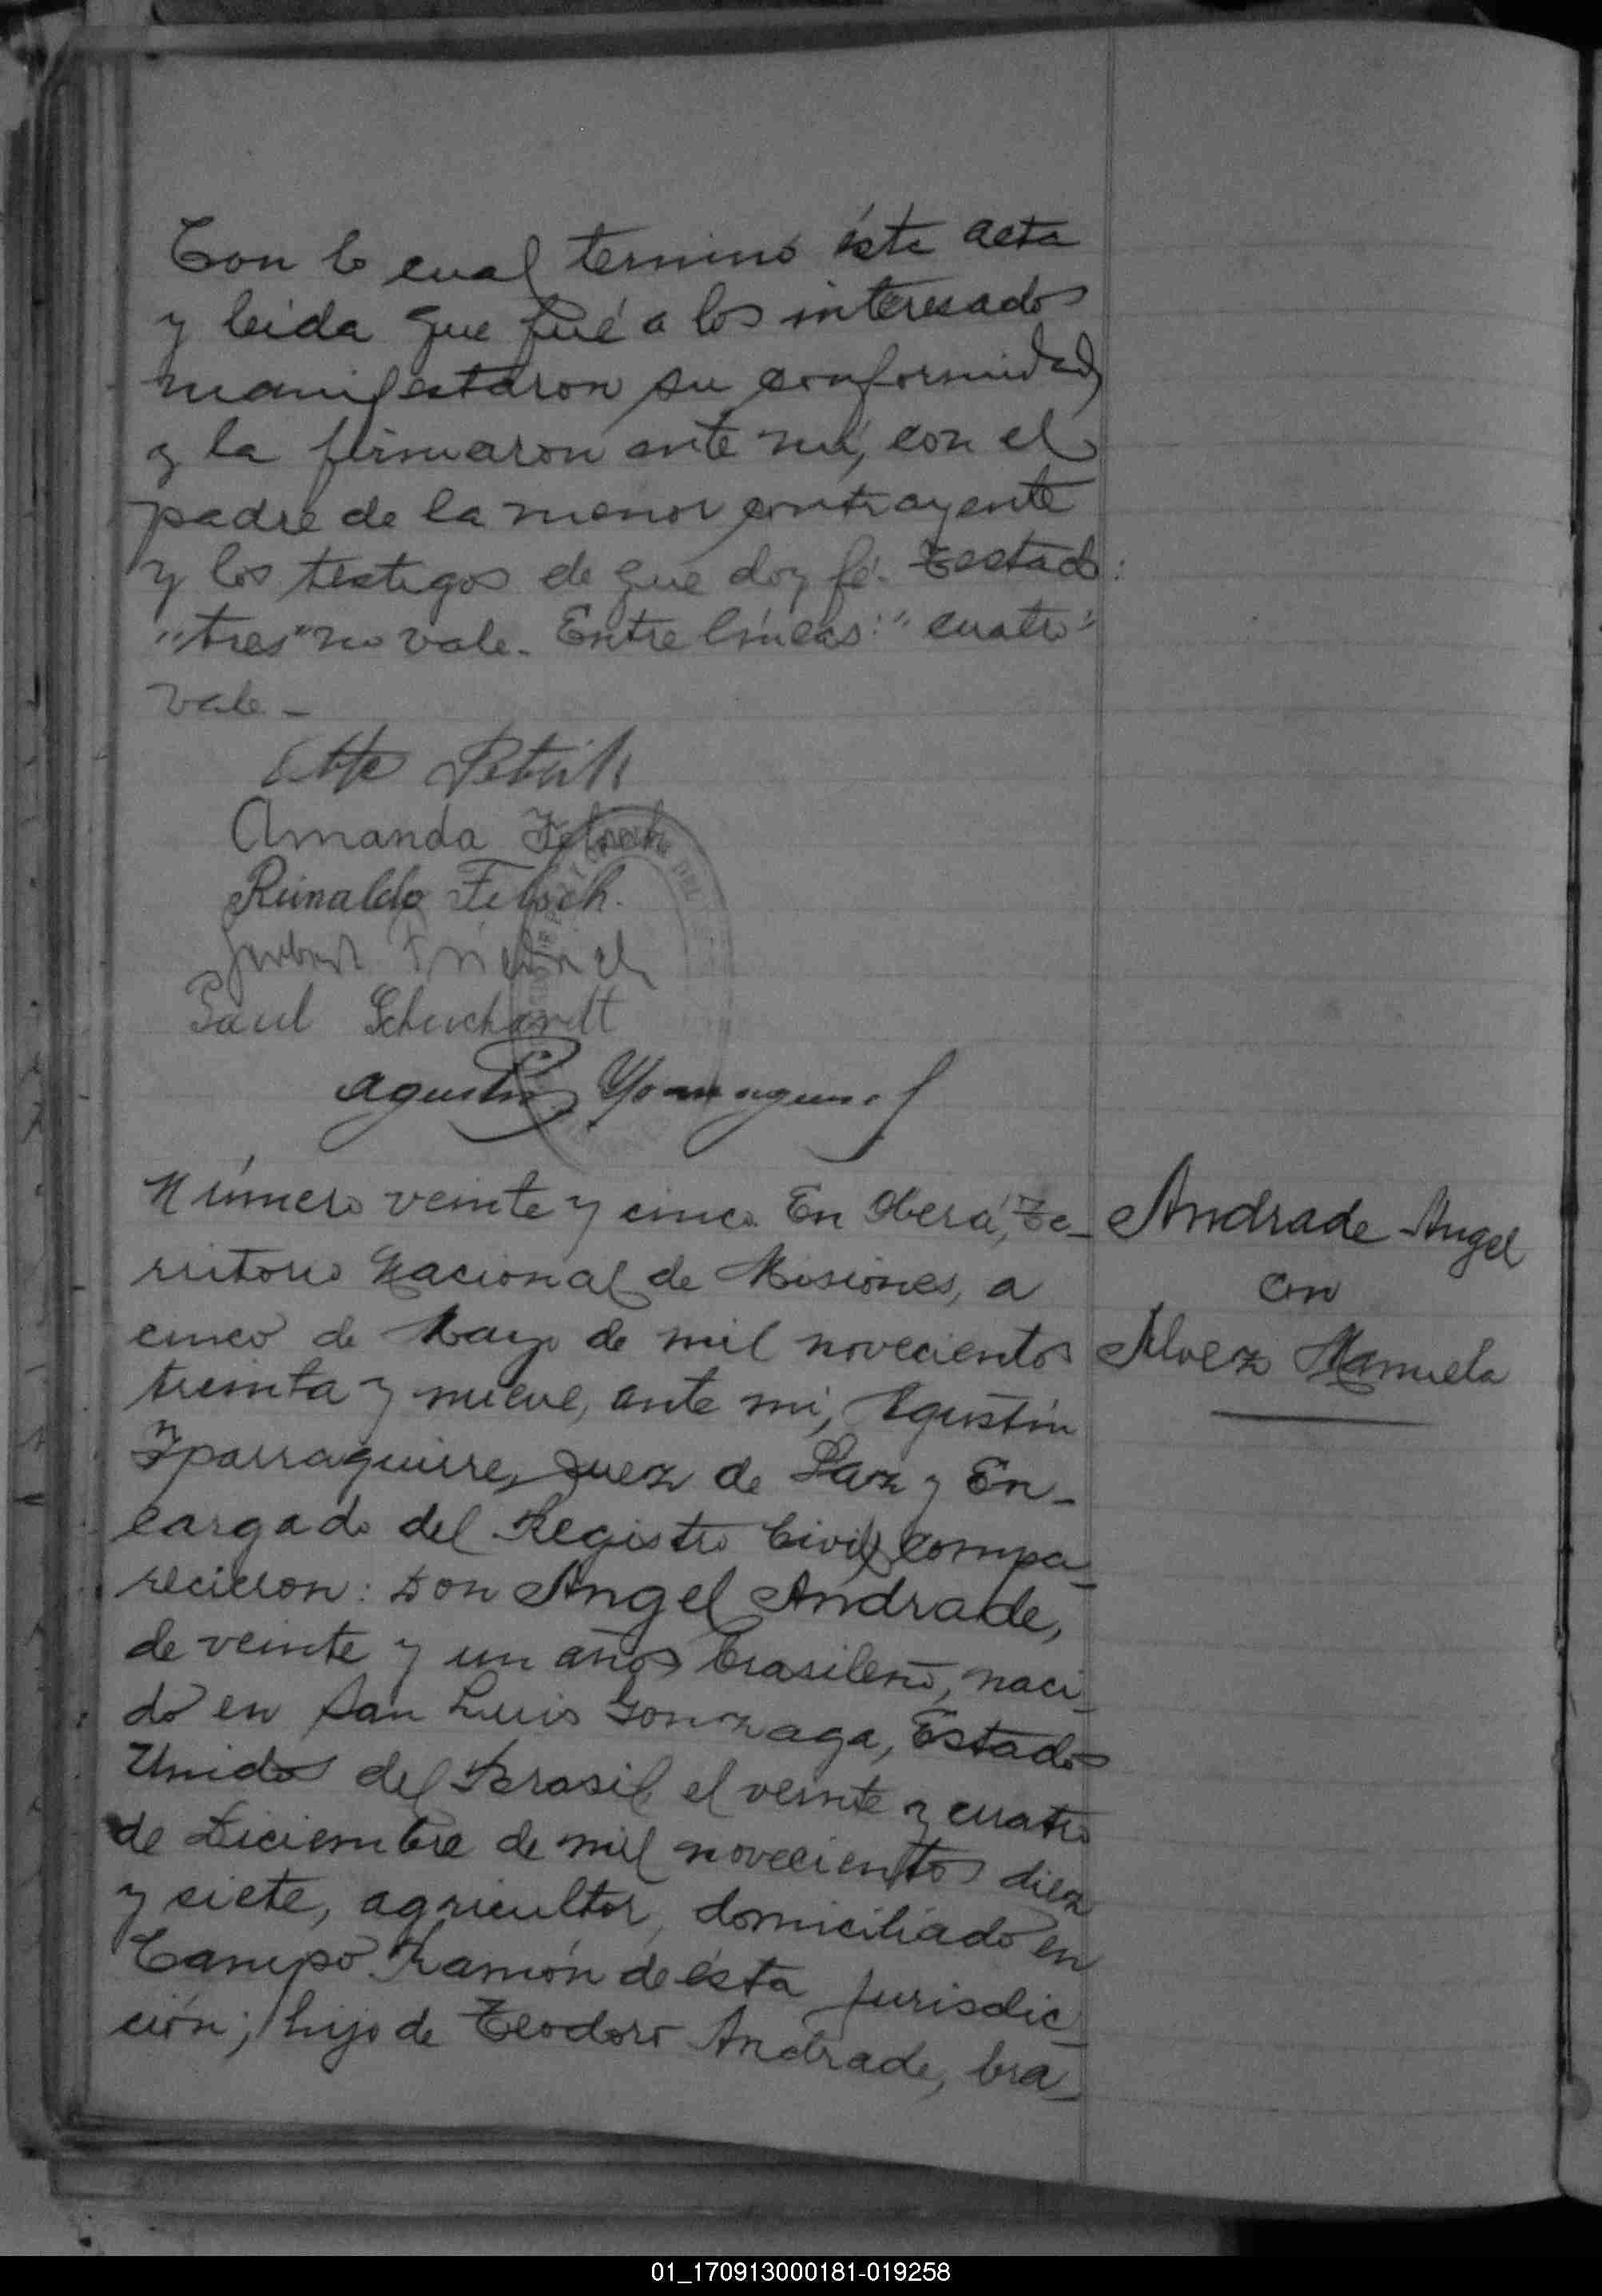 Con lo cual terminó ésta acta
y leída que fué a los interesados
manifestaron su conformidad
y la firmaron ante mí, con el
padre de la menor contrayente
y los testigos de que doy fé. Testado:
"tres" no vale. Entre líneas: "cuatro"
vale.-
Otto
Amanda Felsch
Reinaldo Felsch.
Friedrich
Paul Schuchardt
Agustín
Número veinte y cinco. En Oberá, Te-
rritorio Nacional de Misiones, a
cinco de Mayo de mil novecientos
treinta y nueve, ante mí, Agustín
Yparraguirre, Juez de Paz y En-
cargado del Registro Civil, compa-
recieron: Don Angel Andrade,
de veinte y un años brasileño, naci-
do en San Luis Gonzaga, Estados
Unidos del Brasil el veinte y cuatro
de Diciembre de mil novecientos diez
y siete, agricultor, domiciliado en
Campo Ramón de ésta jurisdic-
ción; hijo de Teodoro Andrade, bra-
Andrade Angel
con
Alvez Manuela
01_170913000181-019258